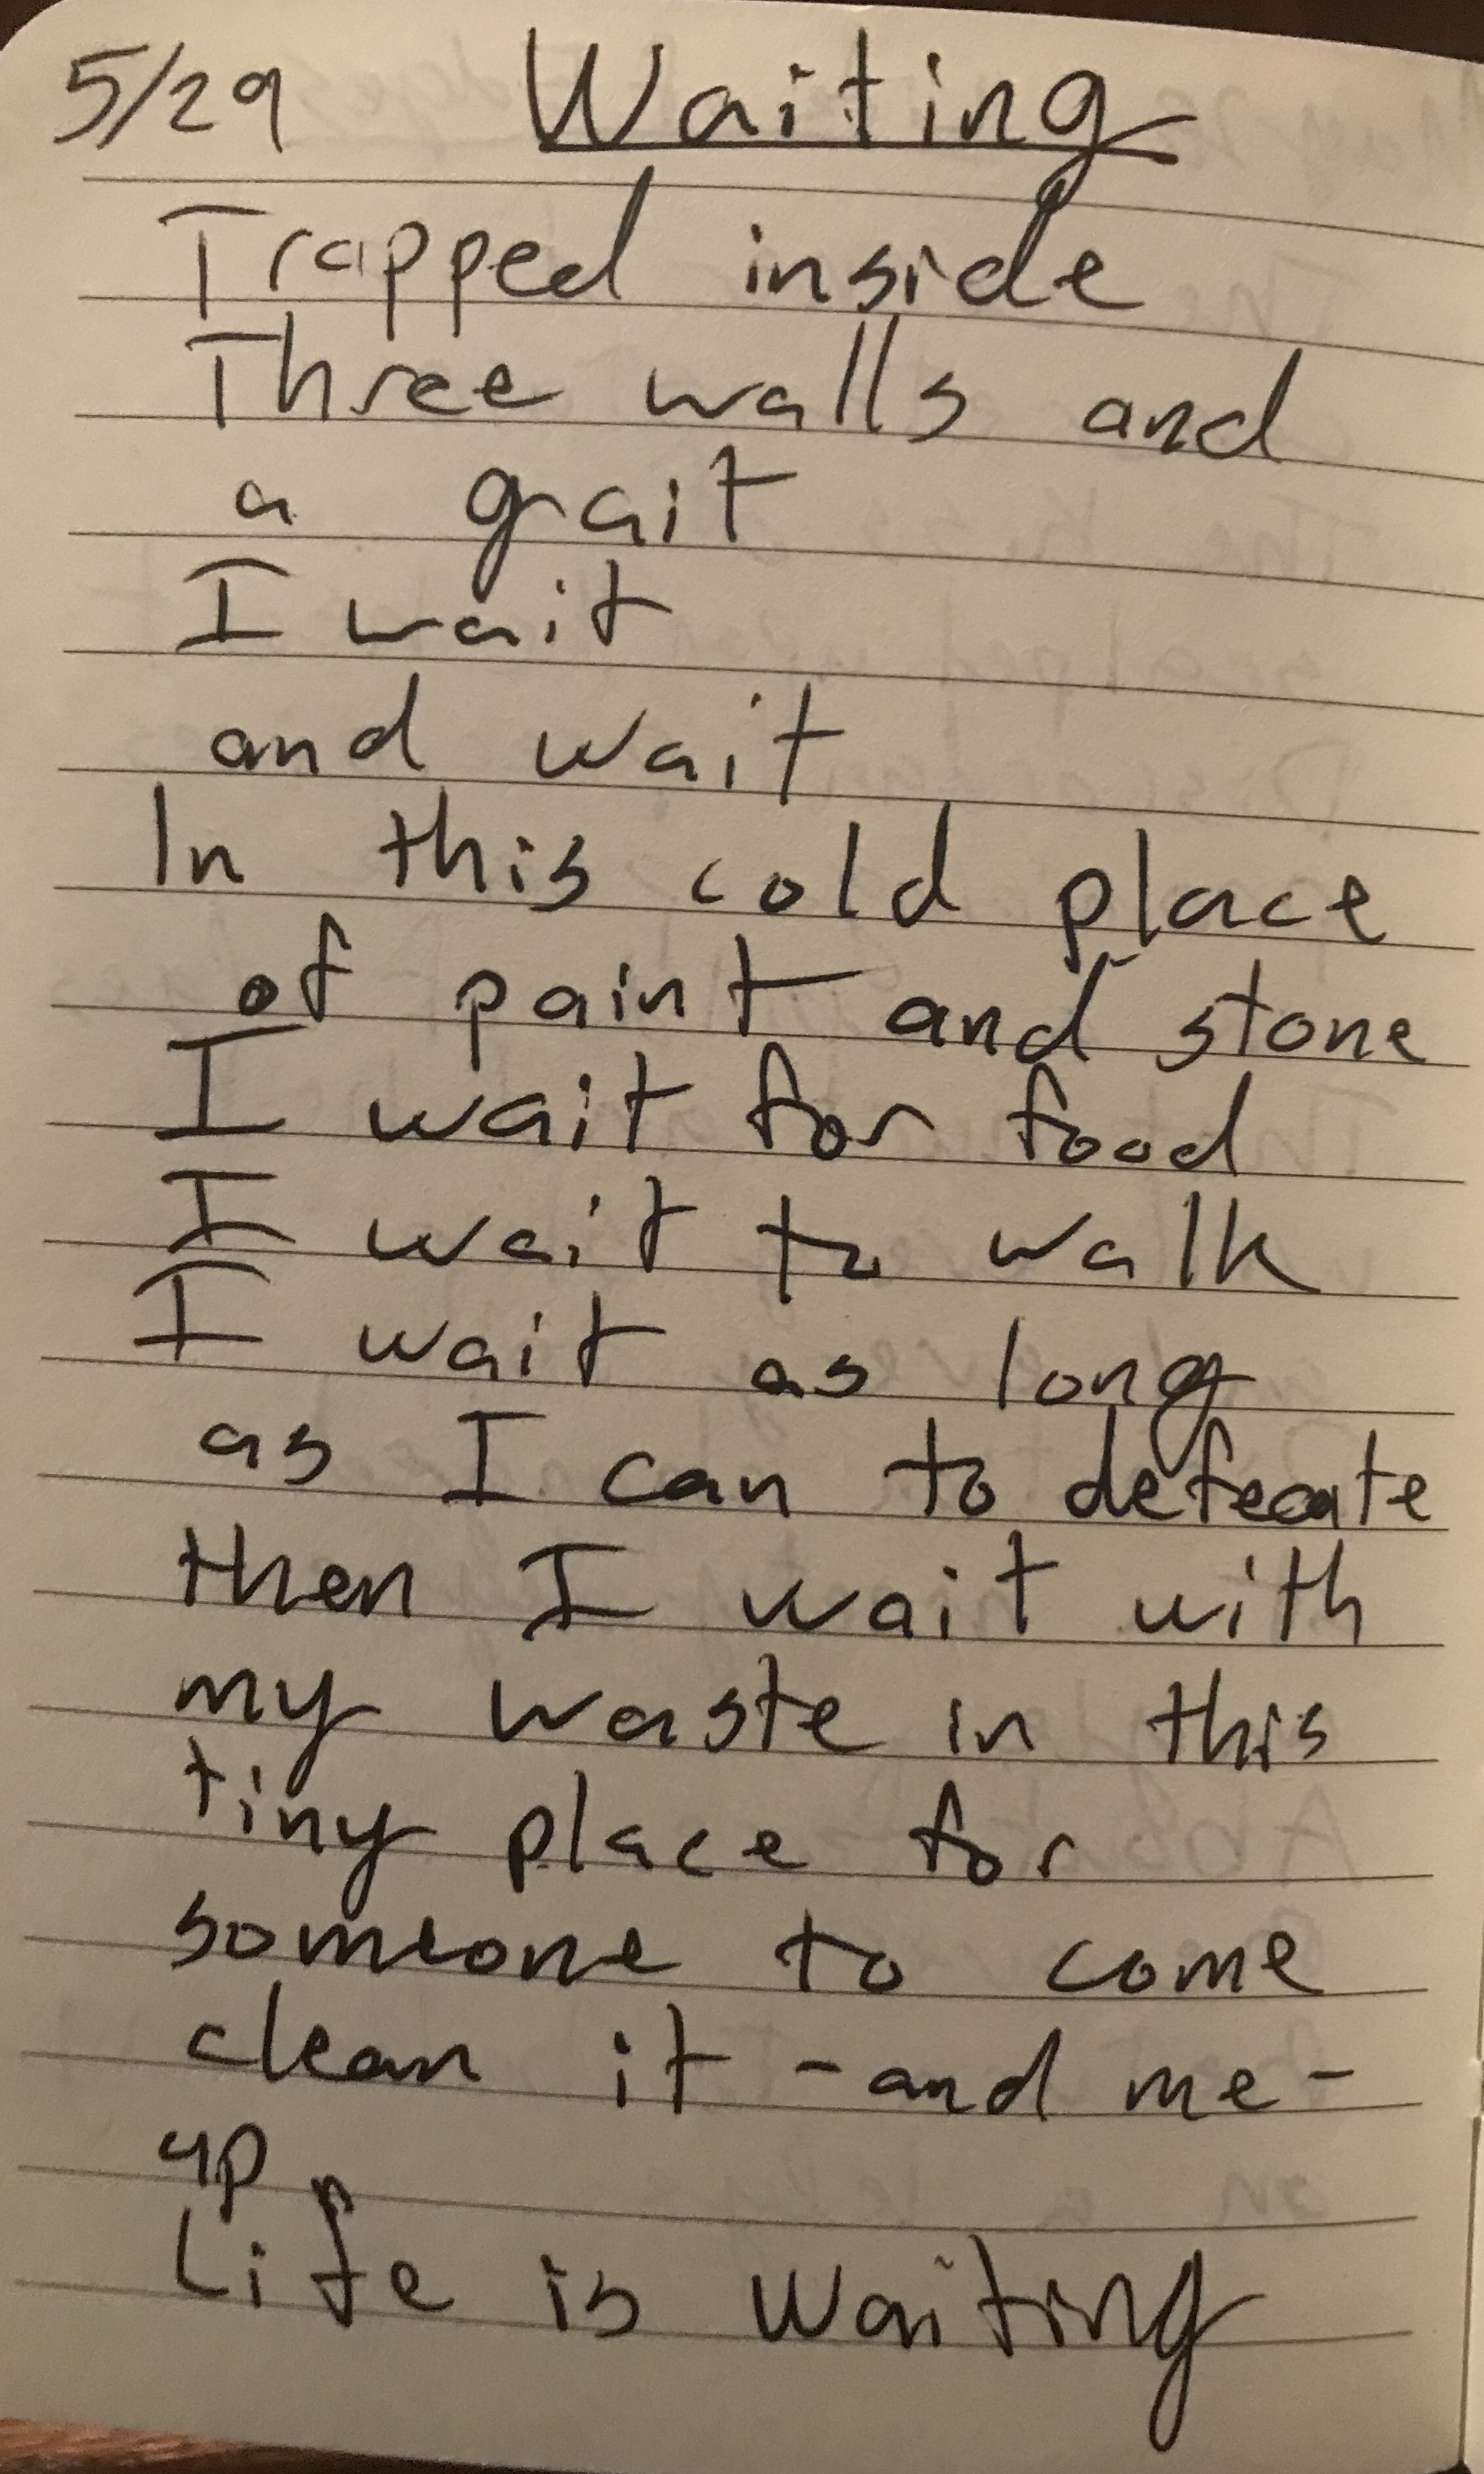 5/29 Waiting
Trapped inside
Three walls and
a grait
I wait
and wait
In this cold place
of paint and stone
I wait for food
I wait to walk
I wait as long
as I can to defecate
then I wait with
my waste in this
tiny place for
someone to come
clean it - and me -
up
Life is waiting